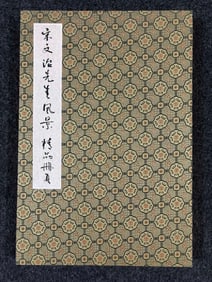 宋文治先生風景精品册頁